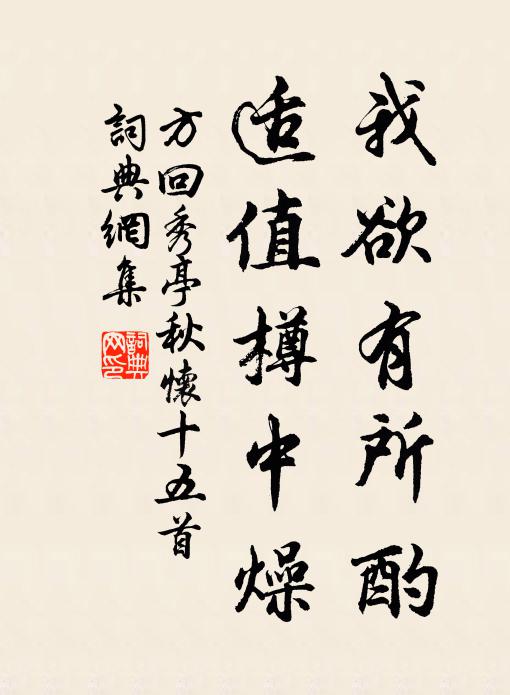 我欲有所酌
适值樽中燥
方回秀亭秋懷十五首
詞典網集
詞典網印